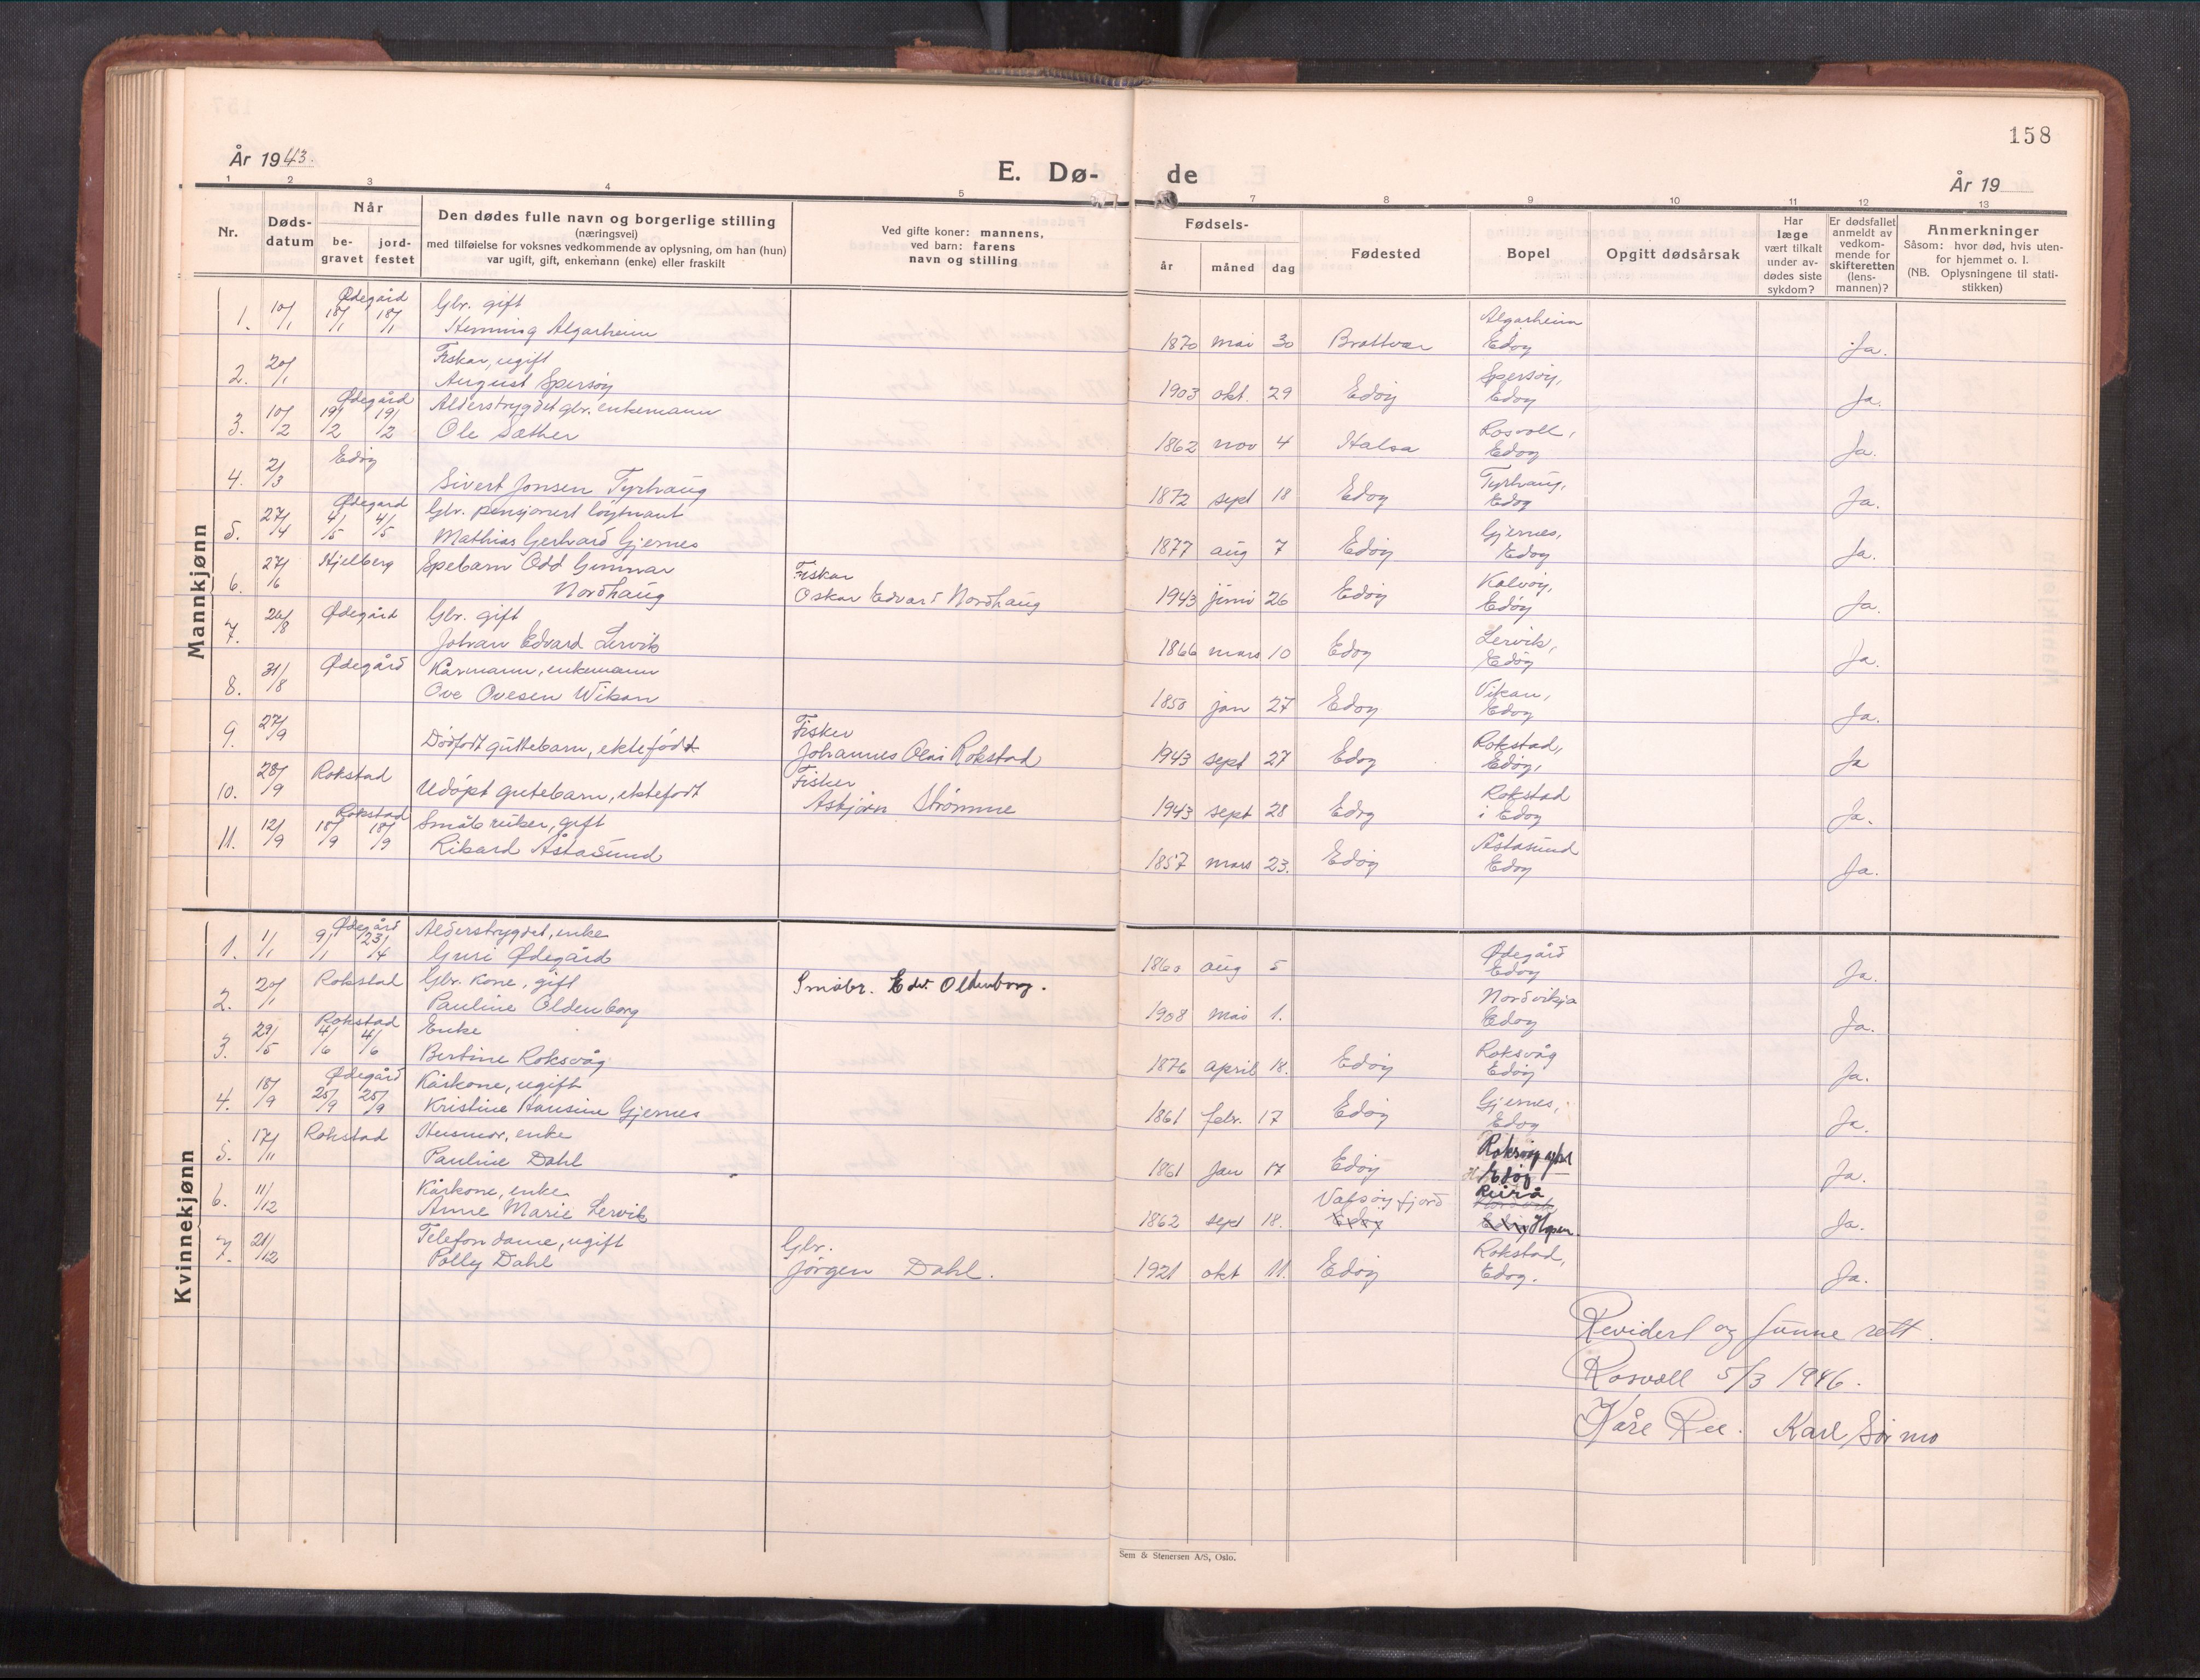 158
År 1943.
E. Dø-
de
År 19
1 2 3 4 5 7 8 9 10 11 12 13
Nr.
Døds-
datum
Når
be-
gravet
jord-
festet
Den dødes fulle navn og borgerlige stilling
(næringsvei)
med tilføielse for voksnes vedkommende av oplysning, om han (hun)
var ugift, gift, enkemann (enke) eller fraskilt
Ved gifte koner: mannens,
ved barn: farens
navn og stilling
Fødsels-
år måned dag
Fødested
Bopel
Opgitt dødsårsak
Har
læge
vært tilkalt
under av-
dødes siste
sykdom?
Er dødsfallet
anmeldt av
vedkom-
mende for
skifteretten
(lens-
mannen)?
Anmerkninger
Såsom: hvor død, hvis uten-
for hjemmet o. l.
(NB. Oplysningene til stati-
stikken)
Mannkjønn
Ødegård Gbr. gift Algarheim
1. 10/1 18/1 18/1 Henning Algarheim 1870 mai 30 Brattvær Edøy Ja.
Fiskar, ugift Spersøy,
2. 20/1 August Spersøy 1903 okt. 29 Edøy Edøy Ja.
Ødegård Alderstrygdet gbr. enkemann Rosvoll,
3. 10/2 19/2 19/2 Ole Sæther 1862 nov 4 Halsa Edøy Ja.
Edøy Tyrhaug,
4. 2/3 Sivert Jonsen Tyrhaug 1872 sept 18 Edøy Edøy Ja.
Ødegard Gbr. pensjonert løytnant Gjernes,
5. 27/4 4/5 4/5 Mathias Gerhard Gjernes 1877 aug 7 Edøy Edøy Ja.
27/6 Hjelberg Spebarn Odd Gunnar Fiskar Kalvøy,
6. Nordhaug Oskar Edvard Nordhaug 1943 juni 26 Edøy Edøy Ja.
26/8 Ødegård Gbr. gift Lervik,
7. Johan Edvard Lervik 1866 mars 10 Edøy Edøy Ja.
31/8 Ødegård Kårmann, enkemann Vikan,
8. Ove Ovesen Wikan 1850 jan 27 Edøy Edøy Ja.
27/9 Fisker Rokstad,
9. Dødfødt guttebarn, ektefødt Johannes Olai Rokstad 1943 sept 27 Edøy Edøy, Ja
28/9 Rokstad Fisker Rokstad
10. Udøpt gutebarn, ektefødt Asbjørn Strømme 1943 sept 28 Edøy i Edøy Ja.
Rokstad Småbruker, gift Åstasund
11. 12/9 18/9 18/9 Rikard Åstasund 1857 mars 23. Edøy Edøy Ja.
Kvinnekjønn
Ødegård Alderstrygdet, enke Ødegård
1. 1/1 9/1 23/4 Guri Ødegård 1860 aug 5 Edøy Ja.
20/1 Rokstad Gbr. kone, gift Småbr. Edv. Oldenborg. Nordvikja
2. Pauline Oldenborg 1908 mai 1. Edøy Ja.
Rokstad Enke Roksvåg
3. 29/5 4/6 4/6 Bertine Roksvåg 1876 april 18. Edøy Edøy Ja.
Ødegård Kårkone, ugift Gjernes,
4. 18/9 25/9 25/9 Kristine Hansine Gjernes 1861 febr. 17 Edøy Edøy Ja.
17/11 Rokstad Husmor, enke
5. Pauline Dahl 1861 jan 17 Edøy Edøy Ja.
11/12 Kårkone, enke Valsøyfjord
6. Anne Marie Lervik 1862 sept 18. Edøy Edøy Hopen Ja.
21/12 Telefondame, ugift Gbr. Rokstad,
7. Polly Dahl Jørgen Dahl. 1921 okt 11. Edøy Edøy. Ja.
Revidert og funne rett.
Rosvoll 5/3 1946.
Kåre Ree. Karl Sørmo
Sem & Stenersen A/S, Oslo.